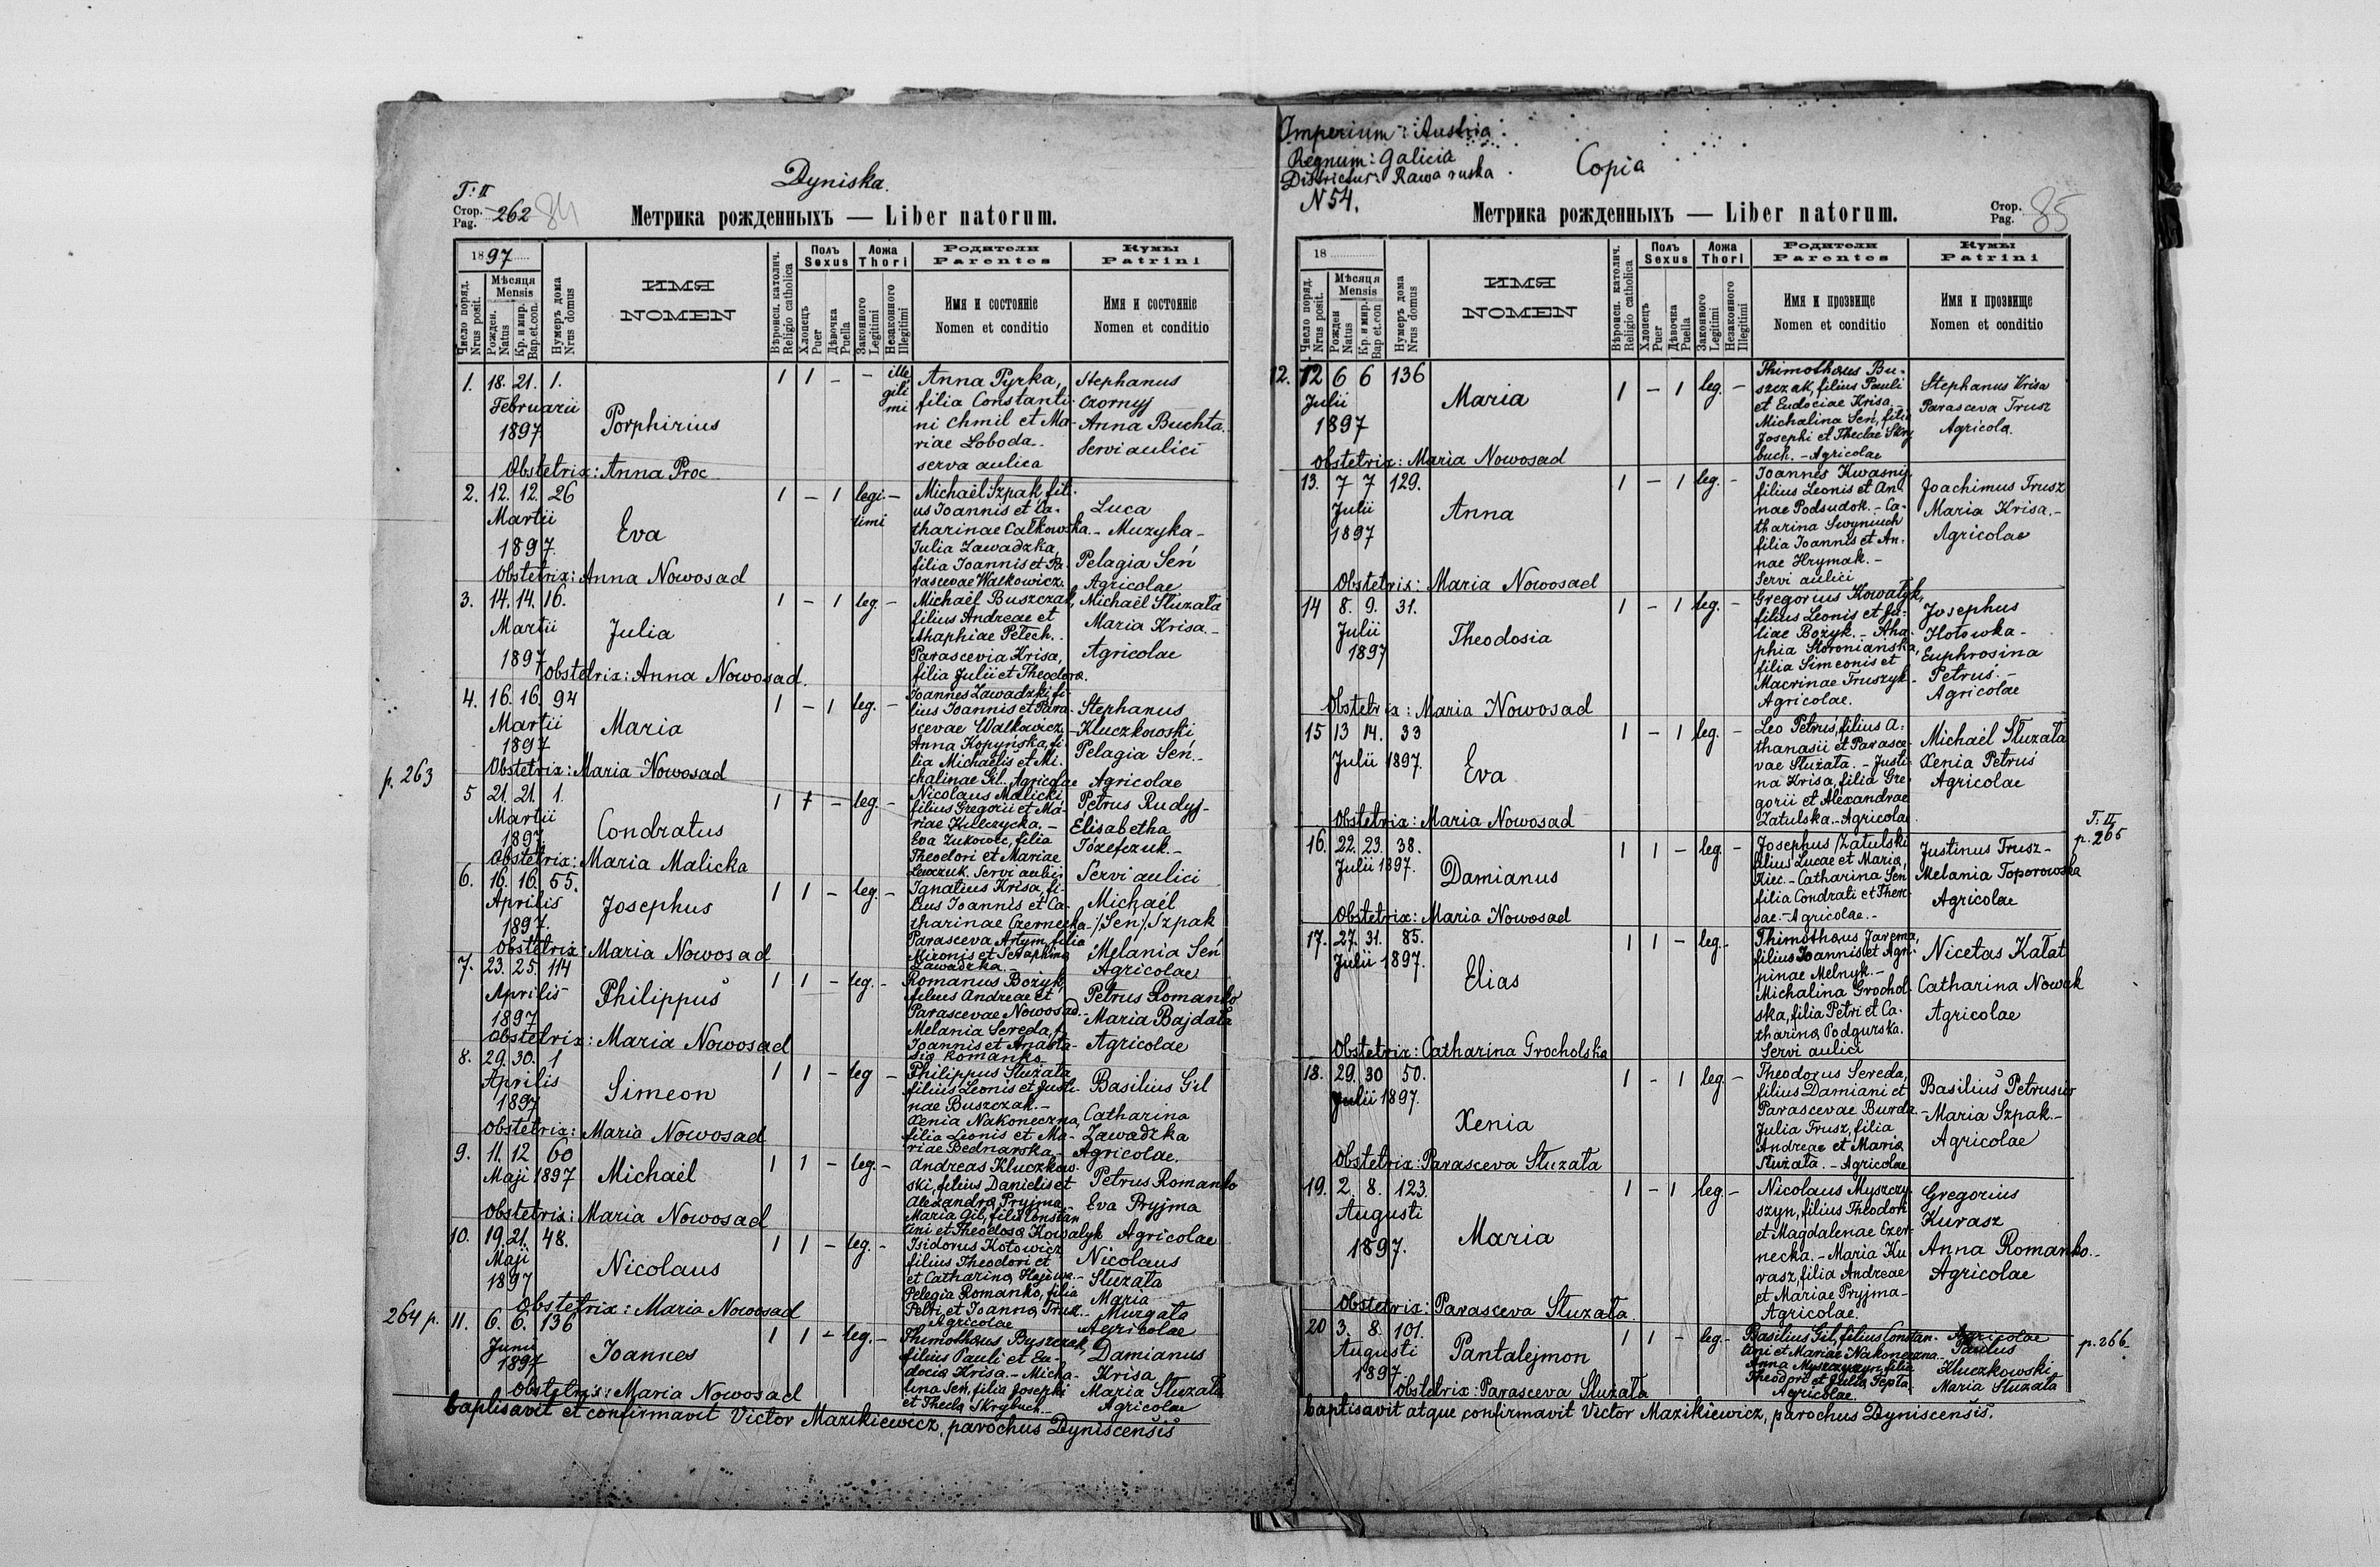 Dyniska.
T: II
Стор.
Pag. 262 84
Метрика рожденныхъ — Liber natorum.
1897
Число поряд.
Nrus posit.
Мѣсяця
Mensis
Рожден.
Natus
Кр. и мир.
Bap. et. con.
Нумеръ дома
Nrus domus
ИМЯ
NOMEN
Вѣроисп. католич.
Religio catholica
Полъ
Sexus
Хлопецъ
Puer
Дѣвочка
Puella
Ложа
Thori
Законного
Legitimi
Незаконного
Illegitimi
Родители
Parentes
Имя и состоянiе
Nomen et conditio
Кумы
Patrini
Имя и состоянiе
Nomen et conditio
1. 18. 21. 1.
Februarii
1897
Porphirius
1 1 – – ille
giti
mi
Anna Pyrka,
filia Constanti-
ni Chmil et Ma-
riae Łoboda.
serva aulica
Stephanus
Czornyj
Anna Buchta.
Servi aulici
Obstetrix: Anna Proc
2. 12. 12. 26
Martii
1897.
Eva
1 – 1 legi- –
timi
Michaël Szpak, fili-
us Joannis et Ca-
tharinae Całkowska.
Julia Zawadzka,
filia Joannis et Pa-
rascevae Walkowicz.
Luca
Muzyka –
Pelagia Seń
Agricolae
Obstetrix: Anna Nowosad
3. 14. 14. 16.
Martii
1897
Julia
1 – 1 leg. –
Michaël Buszczak,
filius Andreae et
Ahaphiae Petech.
Parascevia Krisa,
filia Julii et Theodora.
Michaël Słuzała
Maria Krisa.–
Agricolae
Obstetrix: Anna Nowosad.
4. 16. 16. 94
Martii
1897
Maria
1 – 1 leg. –
Joannes Zawadzki, fi-
lius Joannis et Para-
scevae Walkowicz.
Anna Kopyńska, fi-
lia Michaëlis et Mi-
chalinae Gil. Agricolae
Stephanus
Kluczkowski
Pelagia Seń.–
Agricolae
Obstetrix: Maria Nowosad
p. 263
5 21. 21. 1.
Martii
1897
Condratus
1 1 – leg. –
Nicolaus Malicki
filius Gregorii et Ma-
riae Kulczycka.–
Eva Żukowec, filia
Theodori et Mariae
Lewczuk. Servi aulici
Petrus Rudyj–
Elisabetha
Józefczuk.–
Servi aulici
Obstetrix: Maria Malicka
6. 16. 16. 55.
Aprilis
1897.
Josephus
1 1 – leg. –
Ignatius Krisa, fi-
lius Joannis et Ca-
tharinae Czernecka.
Parasceva Artym, filia
Mironis et Seraphina
Zawadzka.–
Michaël
/:Seń:/ Szpak
Melania Seń
Agricolae
Obstetrix: Maria Nowosad
7. 23. 25. 114
Aprilis
1897
Philippus
1 1 – leg. –
Romanus Bożyk,
filius Andreae et
Parascevae Nowosad.
Melania Sereda, f.
Joannis et Anasta-
sia Romanko
Petrus Romanko
Maria Bajdała
Agricolae
Obstetrix: Maria Nowosad
8. 29. 30. 1
Aprilis
1897
Simeon
1 1 – leg –
Philippus Słuzała
filius Leonis et Justi-
nae Buszczak.–
Xenia Nakoneczna,
filia Leonis et Ma-
riae Bednarska.
Basilius Gil
Catharina
Zawadzka
Agricolae.
Obstetrix: Maria Nowosad
9. 11. 12 60
Maji 1897
Michaël
1 1 – leg. –
Andreas Kluczkow-
ski, filius Danielis et
Alexandra Pryjma.
Maria Gil, filia Constan
tini et Theodosa Kowalyk
Petrus Romanko
Eva Pryjma
Agricolae
Obstetrix: Maria Nowosad
10. 19. 21. 48.
Maji
1897
Nicolaus
1 1 – leg. –
Isidorus Kotowicz
filius Theodori et
et Catharina
Pelegia Romanko, filia
Petri et Joanna Trusz.
Agricolae
Nicolaus
Słuzała
Maria
Murgała
Agricolae
Obstetrix: Maria Nowosad
264 p.
11. 6. 6. 136
Junii
1897
Joannes
1 1 – leg. –
Thimothaus Buszczak,
filius Pauli et Eu-
docia Krisa.– Micha-
lina Seń, filia Josephi
et Thecla Skrybuch.
Damianus
Krisa
Maria Słuzała
Agricolae
Obstetrix: Maria Nowosad
baptisavit et confirmavit Victor Mazikiewicz, parochus Dyniscensis
Imperium: Austria
Regnum: Galicia
Districtus: Rawa ruska.
N 54.
Copia
Метрика рожденныхъ — Liber natorum.
Стор.
Pag. 85
18
Число поряд.
Nrus posit.
Мѣсяця
Mensis
Рожден
Natus
Кр. и мир.
Bap et. con
Нумеръ дома
Nrus domus
ИМЯ
NOMEN
Вѣроисп. католич.
Religio catholica
Полъ
Sexus
Хлопецъ
Puer
Дѣвочка
Puella
Ложа
Thori
Законного
Legitimi
Незаконного
Illegitimi
Родители
Parentes
Имя и прозвище
Nomen et conditio
Кумы
Patrini
Имя и прозвище
Nomen et conditio
12. 12 6 6 136
Julii
1897
Maria
1 – 1 leg. –
Thimothaus Bu-
szczak, filius Pauli
et Eudociae Krisa.–
Michalina Seń, filia
Josephi et Theclae Skry
buch.– Agricolae
Stephanus Krisa
Parasceva Trusz
Agricola.
Obstetrix: Maria Nowosad
13. 7 7 129.
Julii
1897
Anna
1 – 1 leg. –
Joannes Kwasnij
filius Leonis et An-
nae Podsudok.– Ca-
tharina Swyniuch
filia Joannis et An-
nae Hrymak.–
Servi aulici
Joachimus Trusz
Maria Krisa.–
Agricolae
Obstetrix: Maria Nowosad
14 8. 9. 31.
Julii
1897
Theodosia
1 – 1 leg. –
Gregorius Kowalyk,
filius Leonis et Ju-
liae Bożyk.– Aha-
phia Skoronianska,
filia Simeonis et
Macrinae Truszyk–
Agricolae.
Josephus
Hołowka–
Euphrosina
Petruś.–
Agricolae
Obstetrix: Maria Nowosad
15 13 14. 33
Julii 1897.
Eva
1 – 1 leg. –
Leo Petruś, filius A-
thanasii et Parasce-
vae Słuzała.– Justi-
na Krisa, filia Gre-
gorii et Alexandrae
Zatulska.– Agricolae
Michaël Słuzała
Xenia Petruś
Agricolae
Obstetrix: Maria Nowosad
T: II
p. 265
16. 22. 23. 38.
Julii 1897.
Damianus
1 1 – leg –
Josephus Zatulski
filius Lucae et Maria
Kiec.– Catharina Seń
filia Condrati et There-
sae.– Agricolae.–
Justinus Trusz–
Melania Toporowska
Agricolae
Obstetrix: Maria Nowosad
17. 27. 31. 85.
Julii 1897.
Elias
1 1 – leg. –
Thimothaus Jarema,
filius Joannis et Agri-
pinae Melnyk.–
Michalina Grochol-
ska, filia Petri et Ca-
tharina Podgurska.
Servi aulici
Nicetas Kałat
Catharina Nowak
Agricolae
Obstetrix: Catharina Grocholska
18. 29. 30 50.
Julii 1897.
Xenia
1 – 1 leg. –
Theodorus Sereda,
filius Damiani et
Parascevae Burda.
Julia Trusz, filia
Andreae et Maria
Słuzała.– Agricolae
Basilius Petrusiw
–Maria Szpak.–
Agricolae
Obstetrix: Parasceva Słuzała
19. 2. 8. 123.
Augusti
1897.
Maria
1 – 1 leg. –
Nicolaus Myszczy-
szyn, filius Theodori
et Magdalenae Czer-
necka.– Maria Ku
rasz, filia Andreae
et Mariae Pryjma–
Agricolae.
Gregorius
Kurasz
Anna Romanko.–
Agricolae
Obstetrix: Parasceva Słuzała.
20 3. 8. 101.
Augusti
1897.
Pantalejmon
1 1 – leg. –
Basilius Gil, filius Constan-
tini et Mariae Nakoneczna
Anna Myszczyszyn, filia
Theodori et Julia Tepla
Agricolae
Agricolae
Paulus
Kluczkowski
Maria Słuzała
p. 266.
Obstetrix: Parasceva Słuzała
baptisavit atque confirmavit Victor Mazikiewicz, parochus Dyniscensis.